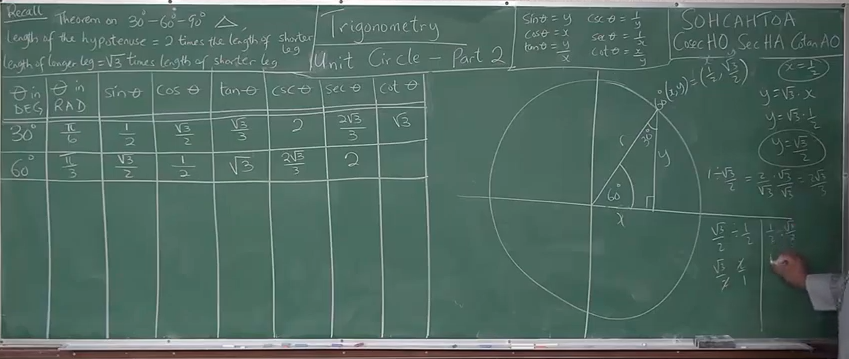 Recall
Theorem on 30°-60°-90° △
Length of the hypotenuse = 2 times the length of shorter leg
length of longer leg = √3 times length of shorter leg
Trigonometry
Unit Circle - Part 2
sinθ = y cscθ = 1/y
cosθ = x secθ = 1/x
tanθ = y/x cotθ = x/y
SOHCAHTOA
CosecHO SecHA CotanAO
θ in DEG θ in RAD sin θ cos θ tan θ csc θ sec θ cot θ
30° π/6 1/2 √3/2 √3/3 2 2√3/3 √3
60° π/3 √3/2 1/2 √3 2√3/3 2
60° (x,y) = (1/2, √3/2)
x y
30°
r
y
60°
x
x = 1/2
y = √3 · x
y = √3 · 1/2
y = √3/2
1 ÷ √3/2 = 2/√3 · √3/√3 = 2√3/3
√3/2 ÷ 1/2
√3/2 · 2/1
1/2 ÷ √3/2